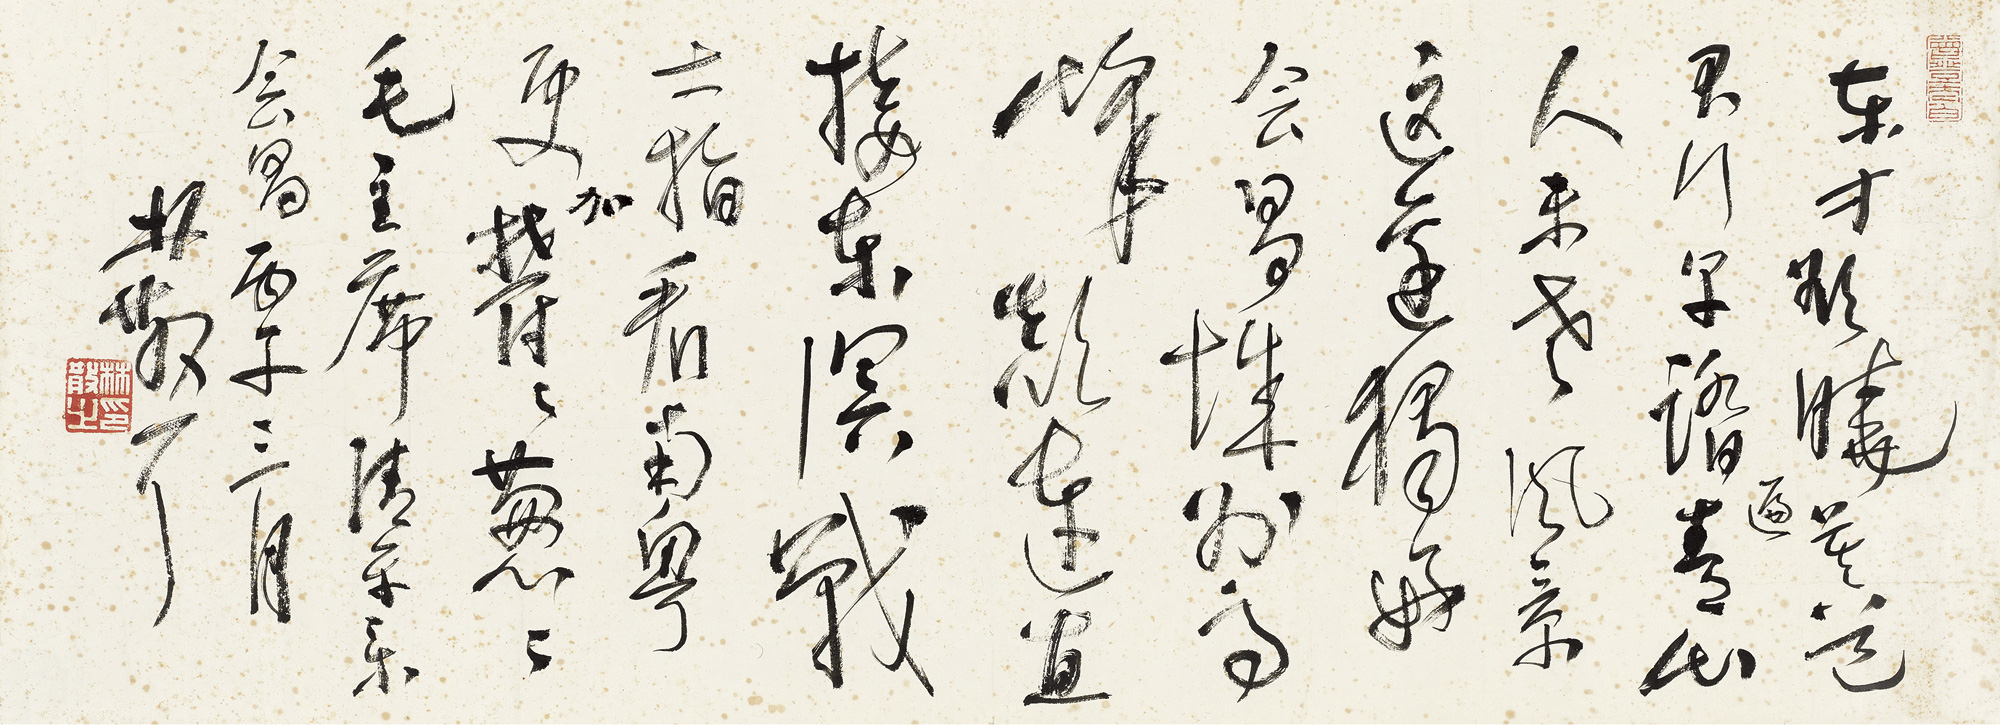 东方欲曉莫道
君行早踏遍青山
人未老風景
这邊獨好
会昌城外高
峰顛連直
接东溟戰
士指看南粤
更加欝々葱々
毛主席清平乐
会昌丙午三月
林散耳
林散之印